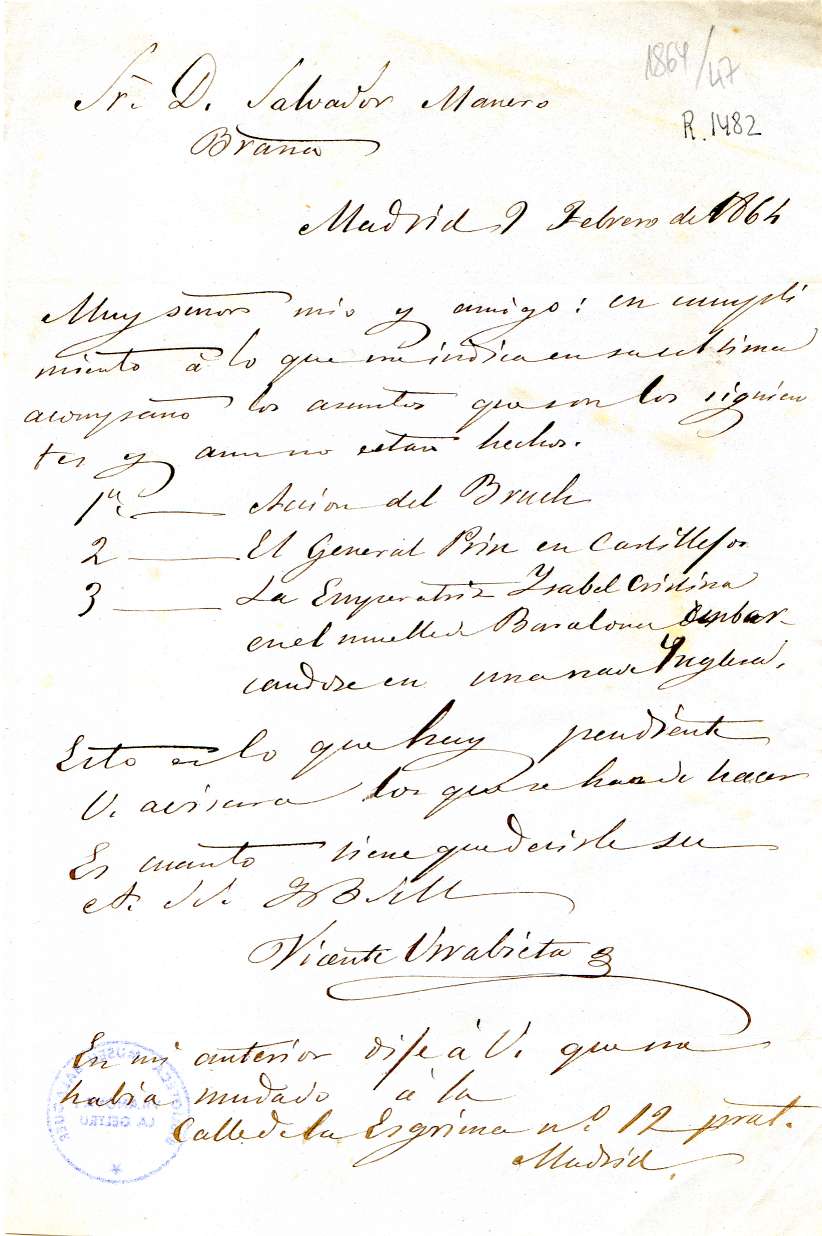 1864/47
R. 1482
Sr. D. Salvador Manero
Brana
Madrid 9 Febrero de 1864
Muy señor mio y amigo: en cumpli
miento á lo que me indica en su ultima
acompaño los asuntos que son los siguien
tes y aun no estan hechos.
1ª. — Acion del Bruch
2 — El General Prin en Castillejos
3 — La Emperatriz Ysabel Cristina
en el muelle de Barcelona embar-
candose en una nave Ynglesa.
Esto es lo que hay pendiente
V. avisara los que se han de hacer
Es cuanto tiene que decirle su
A. S. S. Q B S M
Vicente Urrabieta
En mi anterior dije á V. que me
habia mudado á la
Calle de la Esgrima nº. 12 pral.
Madrid.
LA GELTRU